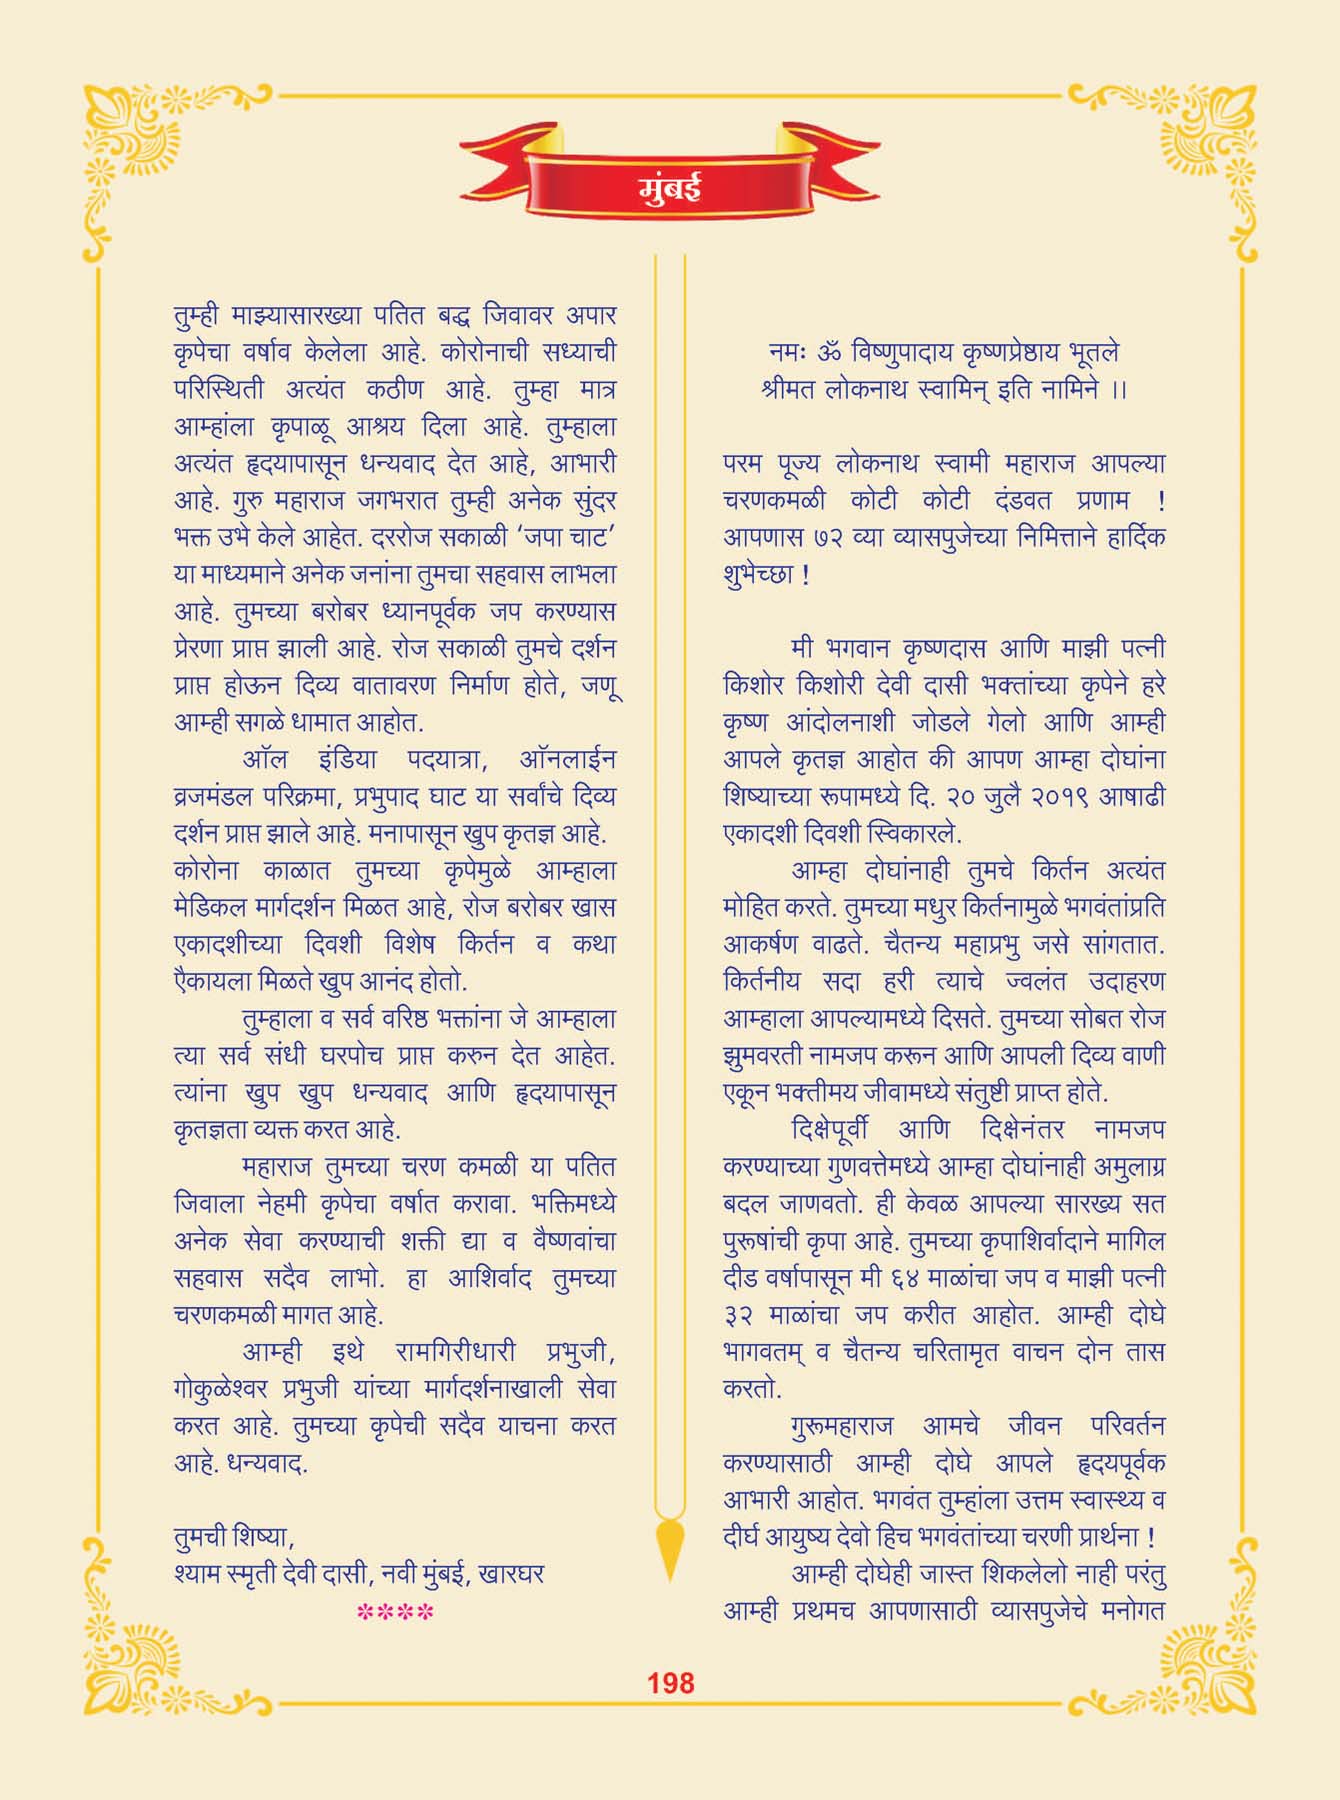 मुंबई
तुम्ही माझ्यासारख्या पतित बद्ध जिवावर अपार
कृपेचा वर्षाव केलेला आहे. कोरोनाची सध्याची
परिस्थिती अत्यंत कठीण आहे. तुम्हा मात्र
आम्हांला कृपाळू आश्रय दिला आहे. तुम्हाला
अत्यंत हृदयापासून धन्यवाद देत आहे, आभारी
आहे. गुरु महाराज जगभरात तुम्ही अनेक सुंदर
भक्त उभे केले आहेत. दररोज सकाळी ‘जपा चाट’
या माध्यमाने अनेक जनांना तुमचा सहवास लाभला
आहे. तुमच्या बरोबर ध्यानपूर्वक जप करण्यास
प्रेरणा प्राप्त झाली आहे. रोज सकाळी तुमचे दर्शन
प्राप्त होऊन दिव्य वातावरण निर्माण होते, जणू
आम्ही सगळे धामात आहोत.
ऑल इंडिया पदयात्रा, ऑनलाईन
व्रजमंडल परिक्रमा, प्रभुपाद घाट या सर्वांचे दिव्य
दर्शन प्राप्त झाले आहे. मनापासून खुप कृतज्ञ आहे.
कोरोना काळात तुमच्या कृपेमुळे आम्हाला
मेडिकल मार्गदर्शन मिळत आहे, रोज बरोबर खास
एकादशीच्या दिवशी विशेष किर्तन व कथा
एैकायला मिळते खुप आनंद होतो.
तुम्हाला व सर्व वरिष्ठ भक्तांना जे आम्हाला
त्या सर्व संधी घरपोच प्राप्त करुन देत आहेत.
त्यांना खुप खुप धन्यवाद आणि हृदयापासून
कृतज्ञता व्यक्त करत आहे.
महाराज तुमच्या चरण कमळी या पतित
जिवाला नेहमी कृपेचा वर्षात करावा. भक्तिमध्ये
अनेक सेवा करण्याची शक्ती द्या व वैष्णवांचा
सहवास सदैव लाभो. हा आशिर्वाद तुमच्या
चरणकमळी मागत आहे.
आम्ही इथे रामगिरीधारी प्रभुजी,
गोकुळेश्वर प्रभुजी यांच्या मार्गदर्शनाखाली सेवा
करत आहे. तुमच्या कृपेची सदैव याचना करत
आहे. धन्यवाद.
तुमची शिष्या,
श्याम स्मृती देवी दासी, नवी मुंबई, खारघर
****
नमः ॐ विष्णुपादाय कृष्णप्रेष्ठाय भूतले
श्रीमत लोकनाथ स्वामिन् इति नामिने ।।
परम पूज्य लोकनाथ स्वामी महाराज आपल्या
चरणकमळी कोटी कोटी दंडवत प्रणाम !
आपणास ७२ व्या व्यासपुजेच्या निमित्ताने हार्दिक
शुभेच्छा !
मी भगवान कृष्णदास आणि माझी पत्नी
किशोर किशोरी देवी दासी भक्तांच्या कृपेने हरे
कृष्ण आंदोलनाशी जोडले गेलो आणि आम्ही
आपले कृतज्ञ आहोत की आपण आम्हा दोघांना
शिष्याच्या रूपामध्ये दि. २० जुलै २०१९ आषाढी
एकादशी दिवशी स्विकारले.
आम्हा दोघांनाही तुमचे किर्तन अत्यंत
मोहित करते. तुमच्या मधुर किर्तनामुळे भगवंतांप्रति
आकर्षण वाढते. चैतन्य महाप्रभु जसे सांगतात.
किर्तनीय सदा हरी त्याचे ज्वलंत उदाहरण
आम्हाला आपल्यामध्ये दिसते. तुमच्या सोबत रोज
झुमवरती नामजप करून आणि आपली दिव्य वाणी
एकून भक्तीमय जीवामध्ये संतुष्टी प्राप्त होते.
दिक्षेपूर्वी आणि दिक्षेनंतर नामजप
करण्याच्या गुणवत्तेमध्ये आम्हा दोघांनाही अमुलाग्र
बदल जाणवतो. ही केवळ आपल्या सारख्य सत
पुरूषांची कृपा आहे. तुमच्या कृपाशिर्वादाने मागिल
दीड वर्षापासून मी ६४ माळांचा जप व माझी पत्नी
३२ माळांचा जप करीत आहोत. आम्ही दोघे
भागवतम् व चैतन्य चरितामृत वाचन दोन तास
करतो.
गुरूमहाराज आमचे जीवन परिवर्तन
करण्यासाठी आम्ही दोघे आपले हृदयपूर्वक
आभारी आहोत. भगवंत तुम्हांला उत्तम स्वास्थ्य व
दीर्घ आयुष्य देवो हिच भगवंतांच्या चरणी प्रार्थना !
आम्ही दोघेही जास्त शिकलेलो नाही परंतु
आम्ही प्रथमच आपणासाठी व्यासपुजेचे मनोगत
198